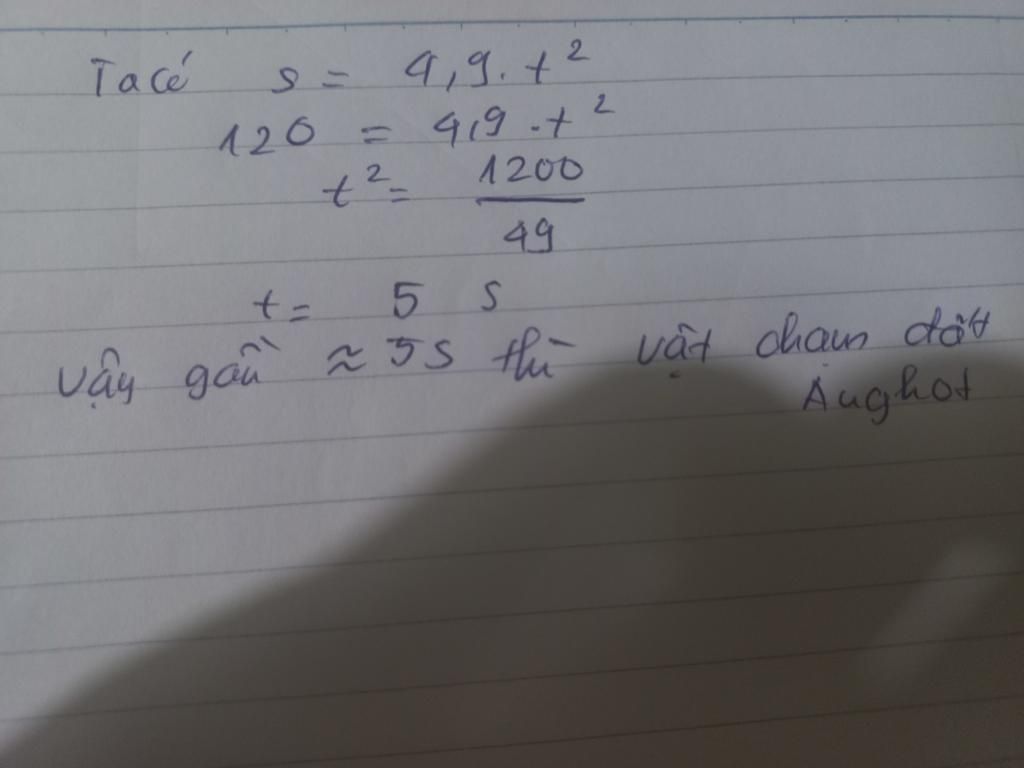 Ta có s = 4,9. t²
120 = 4,9 . t²
t² = 1200/49
t = 5 s
Vậy gần ≈ 5s thì vật chạm đất
Aughot